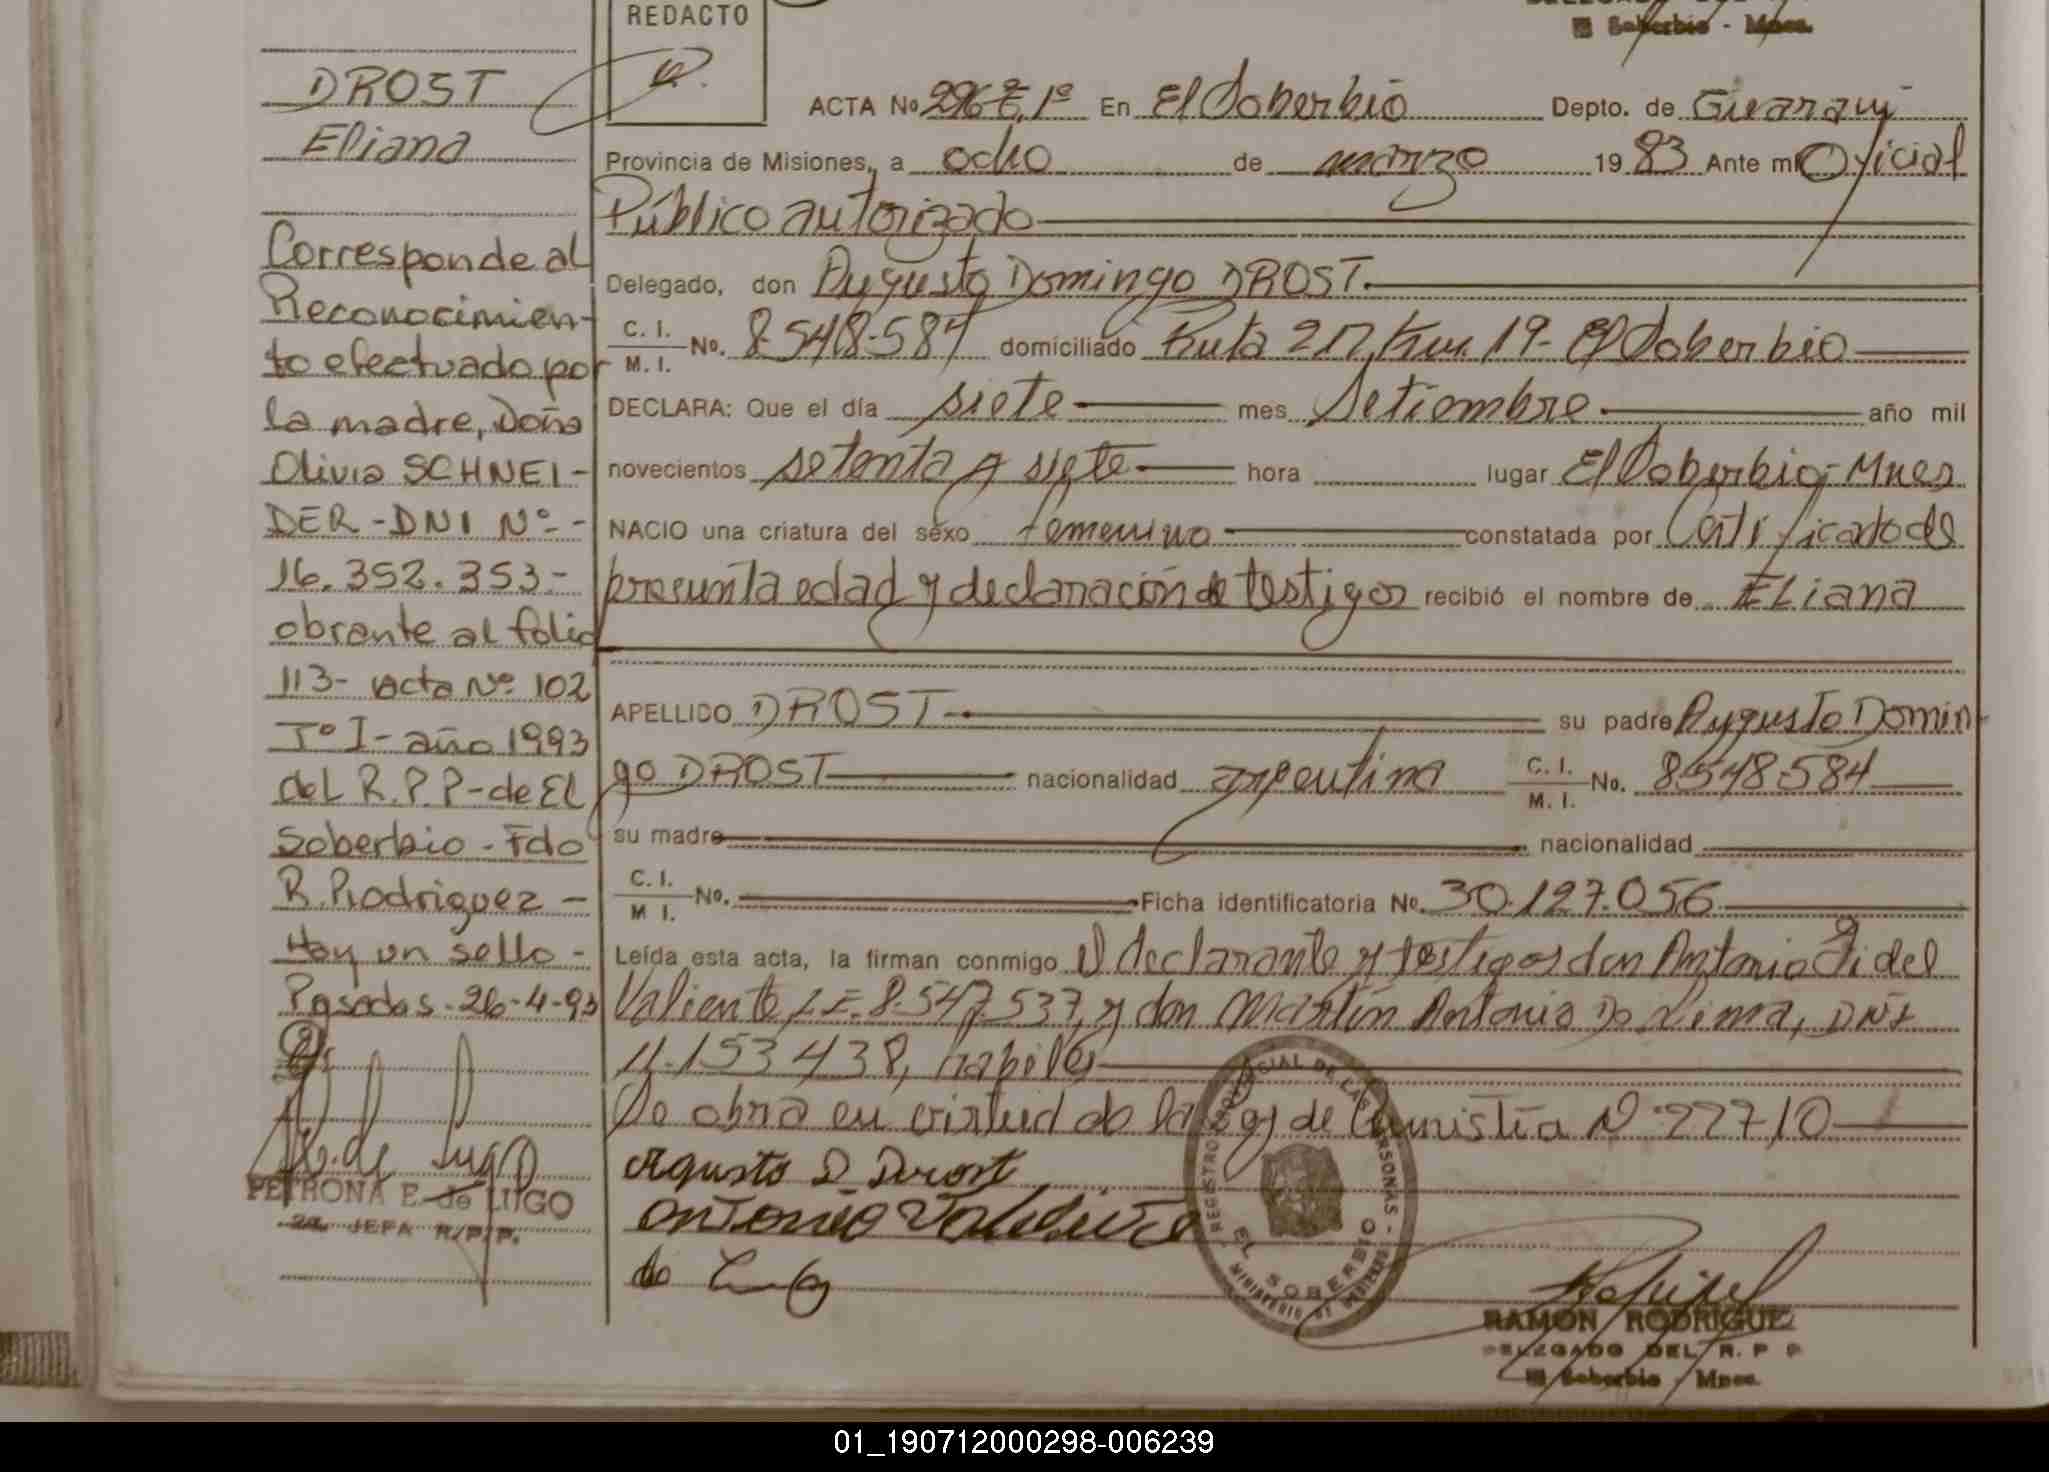 REDACTO
El Soberbio - Mnes.
DROST
Eliana
Corresponde al
Reconocimien-
to efectuado por
la madre, Doña
Olivia SCHNEI-
DER - DNI Nº -
16.352.353-
obrante al folio
113- acta Nº 102
Tº I - año 1993
del R.P.P - de El
Soberbio - Fdo
R. Rodriguez -
Hay un sello -
Posadas - 26-4-93
PETRONA E. de LUGO
2a. JEFA R/P/P.
ACTA Nº 296 T. 1º En El Soberbio Depto. de Guarani
Provincia de Misiones, a ocho de marzo 1983 Ante mi Oficial
Público autorizado
Delegado, don Augusto Domingo DROST.
C. I. / M. I. No. 8.548.584 domiciliado Ruta 2 Km. 19 - El Soberbio
DECLARA: Que el día siete mes Setiembre año mil
novecientos setenta y siete hora lugar El Soberbio - Mnes
NACIO una criatura del sexo femenino constatada por Certificado de
presunta edad y declaración de testigos recibió el nombre de ELiana
APELLIDO DROST su padre Augusto Domin
go DROST nacionalidad argentina C. I. / M. I. No. 8.548.584
su madre nacionalidad
C. I. / M I. No. Ficha identificatoria No. 30.127.056
Leída esta acta, la firman conmigo el declarante y testigos don Antonio Fidel
Valiente L.E. 8.547.537, y don Martín Antonio Da Lima, DNI
11.153.438, habiles
Se obra en virtud de la Ley de Amnistía Nº 22710
Agusto D Drost
Antonio Valiente
REGISTRO PROVINCIAL DE LAS PERSONAS - EL SOBERBIO
RAMON RODRIGUEZ
DELEGADO DEL R. P P
El Soberbio - Mnes.
01_190712000298-006239